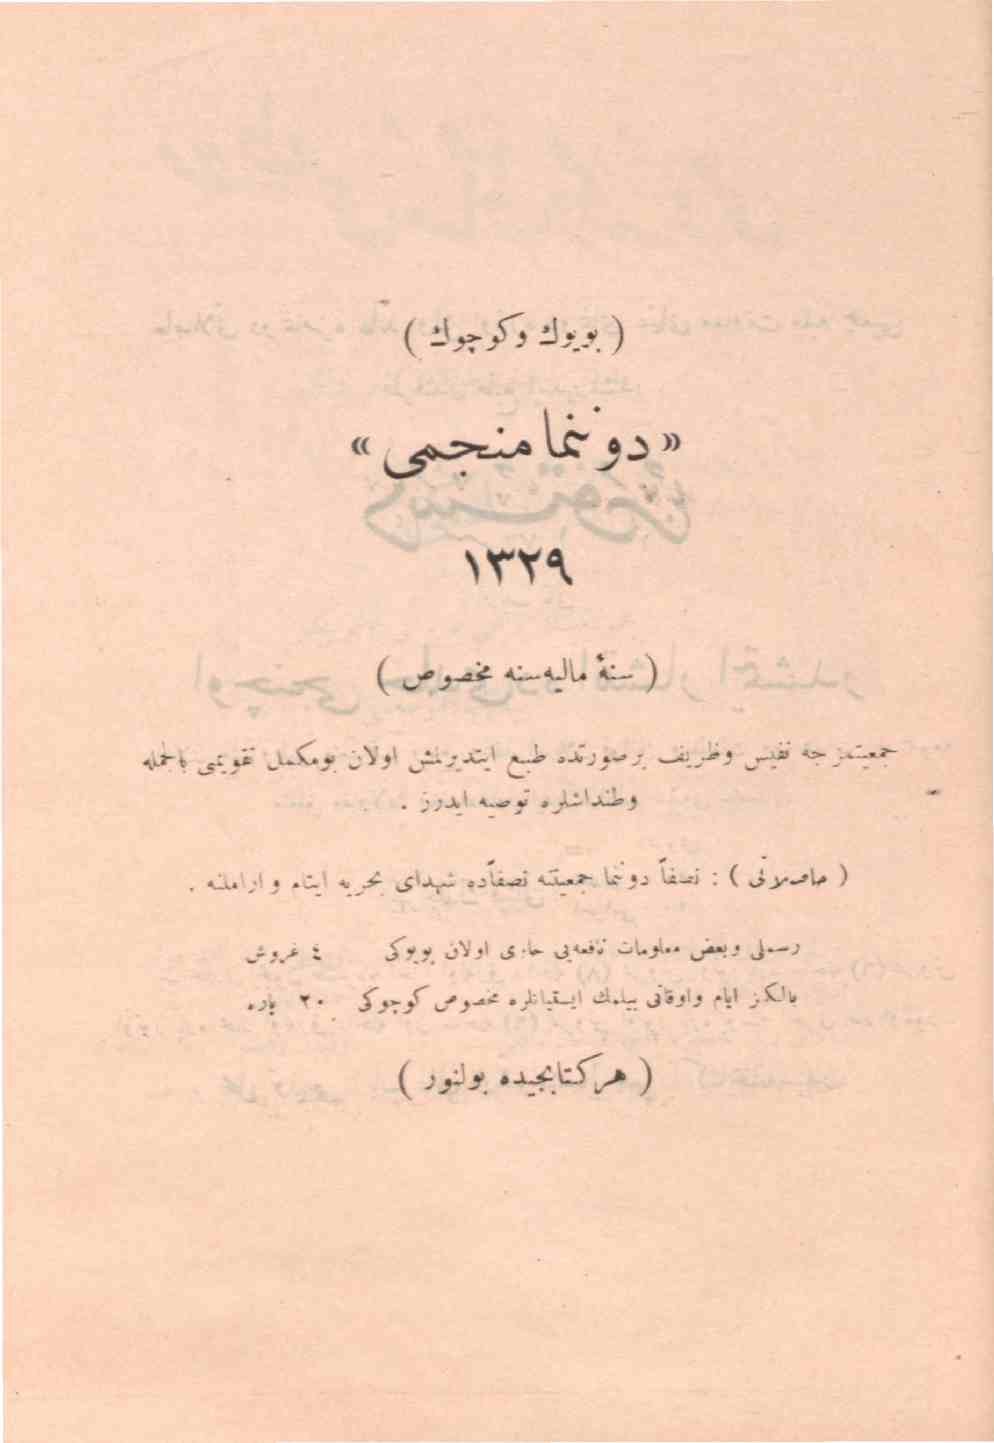 ( بویوك وكوچوك )
« دوننما منجمی »
١٣٢٩
( سنهٔ مالیه‌سنه مخصوص )
جمعیتمزجه نفیس وظریف برصورتده طبع ایتدیرلمش اولان بومكمل تقویمی بالجمله
وطنداشلره توصیه ایدرز .
( حاصلاتی ) : نصفاً دوننما جمعیتنه نصفاًده شهدای بحریه ایتام و اراملنه .
رسملی وبعض معلومات نافعه‌یی حاوی اولان بویوكی ٤ غروش
یالكز ایام واوقاتی بیلمك ایستیانلره مخصوص كوچوكی ٢٠ پاره
( هركتابجیده بولنور )